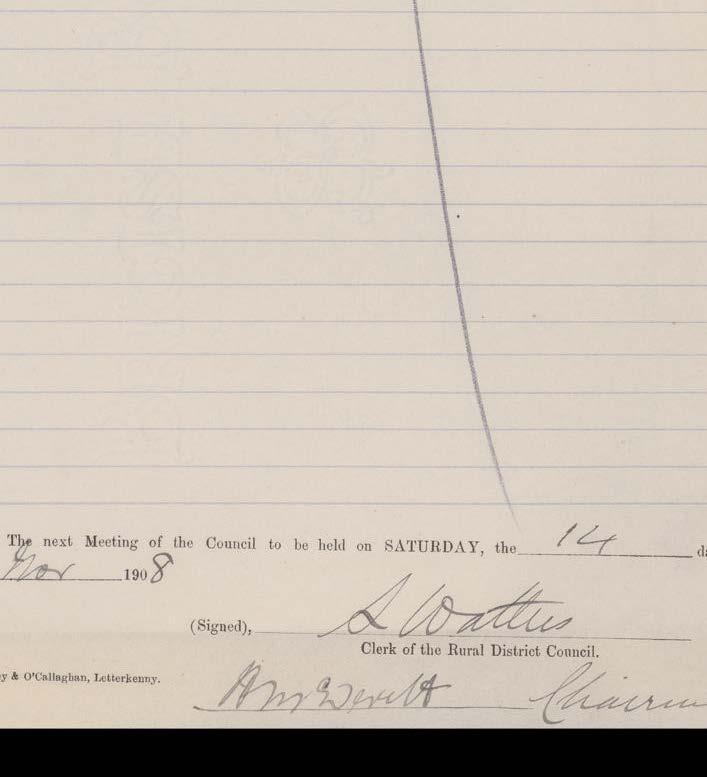 The next Meeting of the Council to be held on SATURDAY, the 14 da
Nov 1908
(Signed), S Watters
Clerk of the Rural District Council.
y & O'Callaghan, Letterkenny.
Chairm